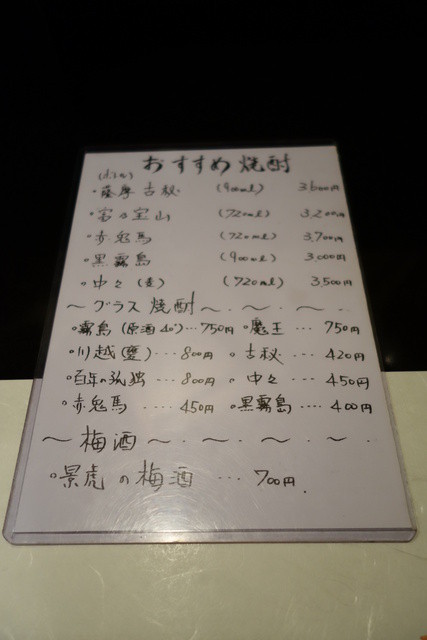 おすすめ焼酎
(ボトル)
・薩摩古秘 (900ml) 3,600円
・富乃宝山 (720ml) 3,200円
・赤兎馬 (720ml) 3,700円
・黒霧島 (900ml) 3,000円
・中々(麦) (720ml) 3,500円
～グラス焼酎～・～・～・
・霧島(原酒40°)…750円 ・魔王…750円
・川越(甕)…800円 ・古秘…420円
・百年の孤独…800円 ・中々…450円
・赤兎馬….450円 ・黒霧島….400円
～梅酒～・～・～・
・景虎の梅酒…700円.